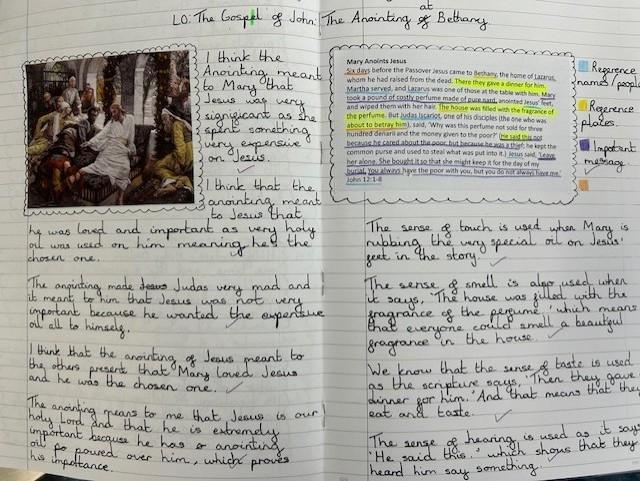 LO: The Gospel of John: The Anointing at Bethany
I think the
Anointing meant
to Mary that
Jesus was very
significant as she
spent something
very expensive
on Jesus.
I think that the
anointing meant
to Jesus that
he was loved and important as very holy
oil was used on him meaning he's the
chosen one.
The anointing made Jesus Judas very mad and
it meant to him that Jesus was not very
important because he wanted the expensive
oil all to himself.
I think that the anointing of Jesus meant to
the others present that Mary loved Jesus
and he was the chosen one.
The anointing means to me that Jesus is our
holy Lord and that he is extremely
important because he has anointing
oil poured over him, which proves
his importance.
Mary Anoints Jesus
Six days before the Passover Jesus came to Bethany, the home of Lazarus,
whom he had raised from the dead. There they gave a dinner for him.
Martha served, and Lazarus was one of those at the table with him. Mary
took a pound of costly perfume made of pure nard, anointed Jesus' feet,
and wiped them with her hair. The house was filled with the fragrance of
the perfume. But Judas Iscariot, one of his disciples (the one who was
about to betray him), said, 'Why was this perfume not sold for three
hundred denarii and the money given to the poor?' (He said this not
because he cared about the poor, but because he was a thief; he kept the
common purse and used to steal what was put into it.) Jesus said, 'Leave
her alone. She bought it so that she might keep it for the day of my
burial. You always have the poor with you, but you do not always have me.'
John 12:1-8
Reference
names/people
Reference
places
Important
message
The sense of touch is used when Mary is
rubbing the very special oil on Jesus'
feet in the story
The sense of smell is also used when
it says, 'The house was filled with the
fragrance of the perfume,' which means
that everyone could smell a beautiful
fragrance in the house.
We know that the sense of taste is used
as the scripture says, 'Then they gave
dinner for him.' And that means that they
eat and taste.
The sense of hearing is used as it says
'He said this.' which shows that they
heard him say something.